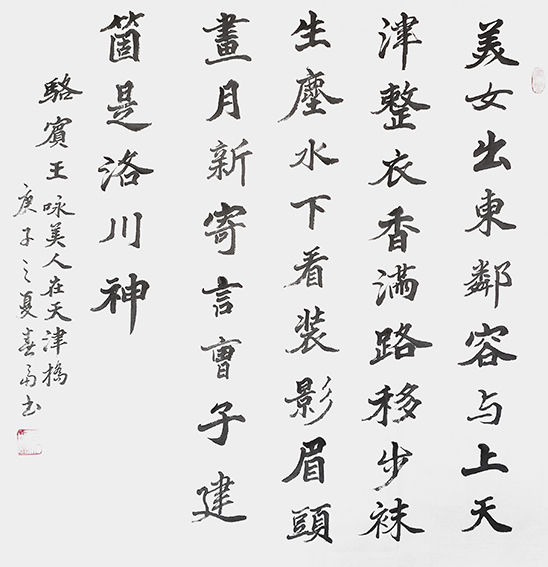 美女出東鄰容与上天
津整衣香滿路移步袜
生塵水下看装影眉頭
畫月新寄言曹子建
箇是洛川神
駱賓王咏美人在天津橋
庚子之夏春府书